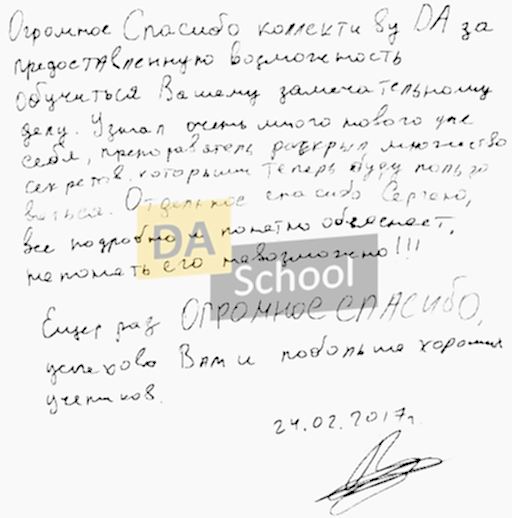 Огромное Спасибо коллективу DA за
предоставленную возможность
обучиться Вашему замечательному
делу. Узнал очень много нового для
себя, преподаватель раскрыл множество
секретов, которыми теперь буду пользо
ваться. Отдельное спасибо Сергею,
все подробно и понятно объясняет,
не понять его невозможно!!!
DA
School
Ещер раз ОГРОМНОЕ СПАСИБО,
успехово Вам и побольше хороших
учеников.
24.02.2017г.